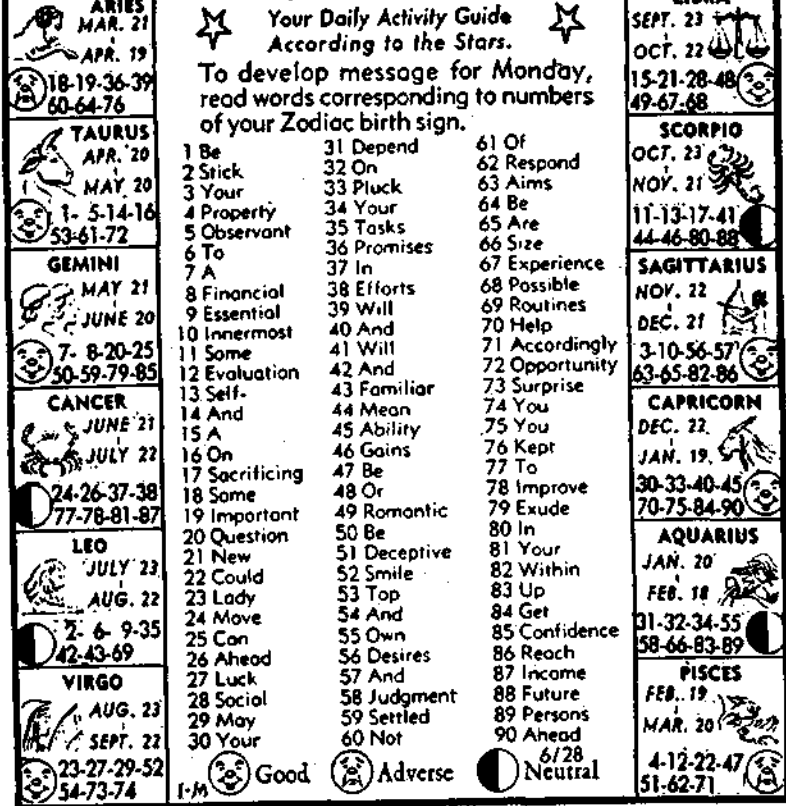 ARIES
MAR. 21
APR. 19
18-19-36-39
60-64-76
TAURUS
APR. 20
MAY 20
1- 5-14-16
53-61-72
GEMINI
MAY 21
JUNE 20
7- 8-20-25
50-59-79-85
CANCER
JUNE 21
JULY 22
24-26-37-38
77-78-81-87
LEO
JULY 23
AUG. 22
2- 6- 9-35
42-43-69
VIRGO
AUG. 23
SEPT. 22
23-27-29-52
54-73-74
Your Daily Activity Guide
According to the Stars.
To develop message for Monday,
read words corresponding to numbers
of your Zodiac birth sign.
1 Be
2 Stick
3 Your
4 Property
5 Observant
6 To
7 A
8 Financial
9 Essential
10 Innermost
11 Some
12 Evaluation
13 Self-
14 And
15 A
16 On
17 Sacrificing
18 Some
19 Important
20 Question
21 New
22 Could
23 Lady
24 Move
25 Can
26 Ahead
27 Luck
28 Social
29 May
30 Your
31 Depend
32 On
33 Pluck
34 Your
35 Tasks
36 Promises
37 In
38 Efforts
39 Will
40 And
41 Will
42 And
43 Familiar
44 Mean
45 Ability
46 Gains
47 Be
48 Or
49 Romantic
50 Be
51 Deceptive
52 Smile
53 Top
54 And
55 Own
56 Desires
57 And
58 Judgment
59 Settled
60 Not
61 Of
62 Respond
63 Aims
64 Be
65 Are
66 Size
67 Experience
68 Possible
69 Routines
70 Help
71 Accordingly
72 Opportunity
73 Surprise
74 You
75 You
76 Kept
77 To
78 Improve
79 Exude
80 In
81 Your
82 Within
83 Up
84 Get
85 Confidence
86 Reach
87 Income
88 Future
89 Persons
90 Ahead
6/28
1-M Good Adverse Neutral
LIBRA
SEPT. 23
OCT. 22
15-21-28-48
49-67-68
SCORPIO
OCT. 23
NOV. 21
11-13-17-41
44-46-80-88
SAGITTARIUS
NOV. 22
DEC. 21
3-10-56-57
63-65-82-86
CAPRICORN
DEC. 22
JAN. 19
30-33-40-45
70-75-84-90
AQUARIUS
JAN. 20
FEB. 18
31-32-34-55
58-66-83-89
PISCES
FEB. 19
MAR. 20
4-12-22-47
51-62-71